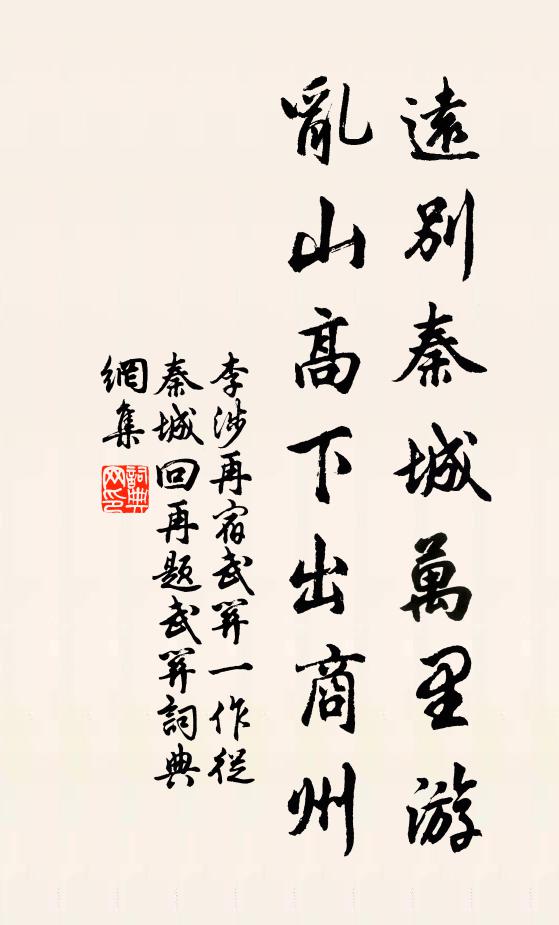 遠別秦城萬里游
亂山高下出商州
李涉再宿武関一作従
秦城回再題武関詞典
網集
詞典网印